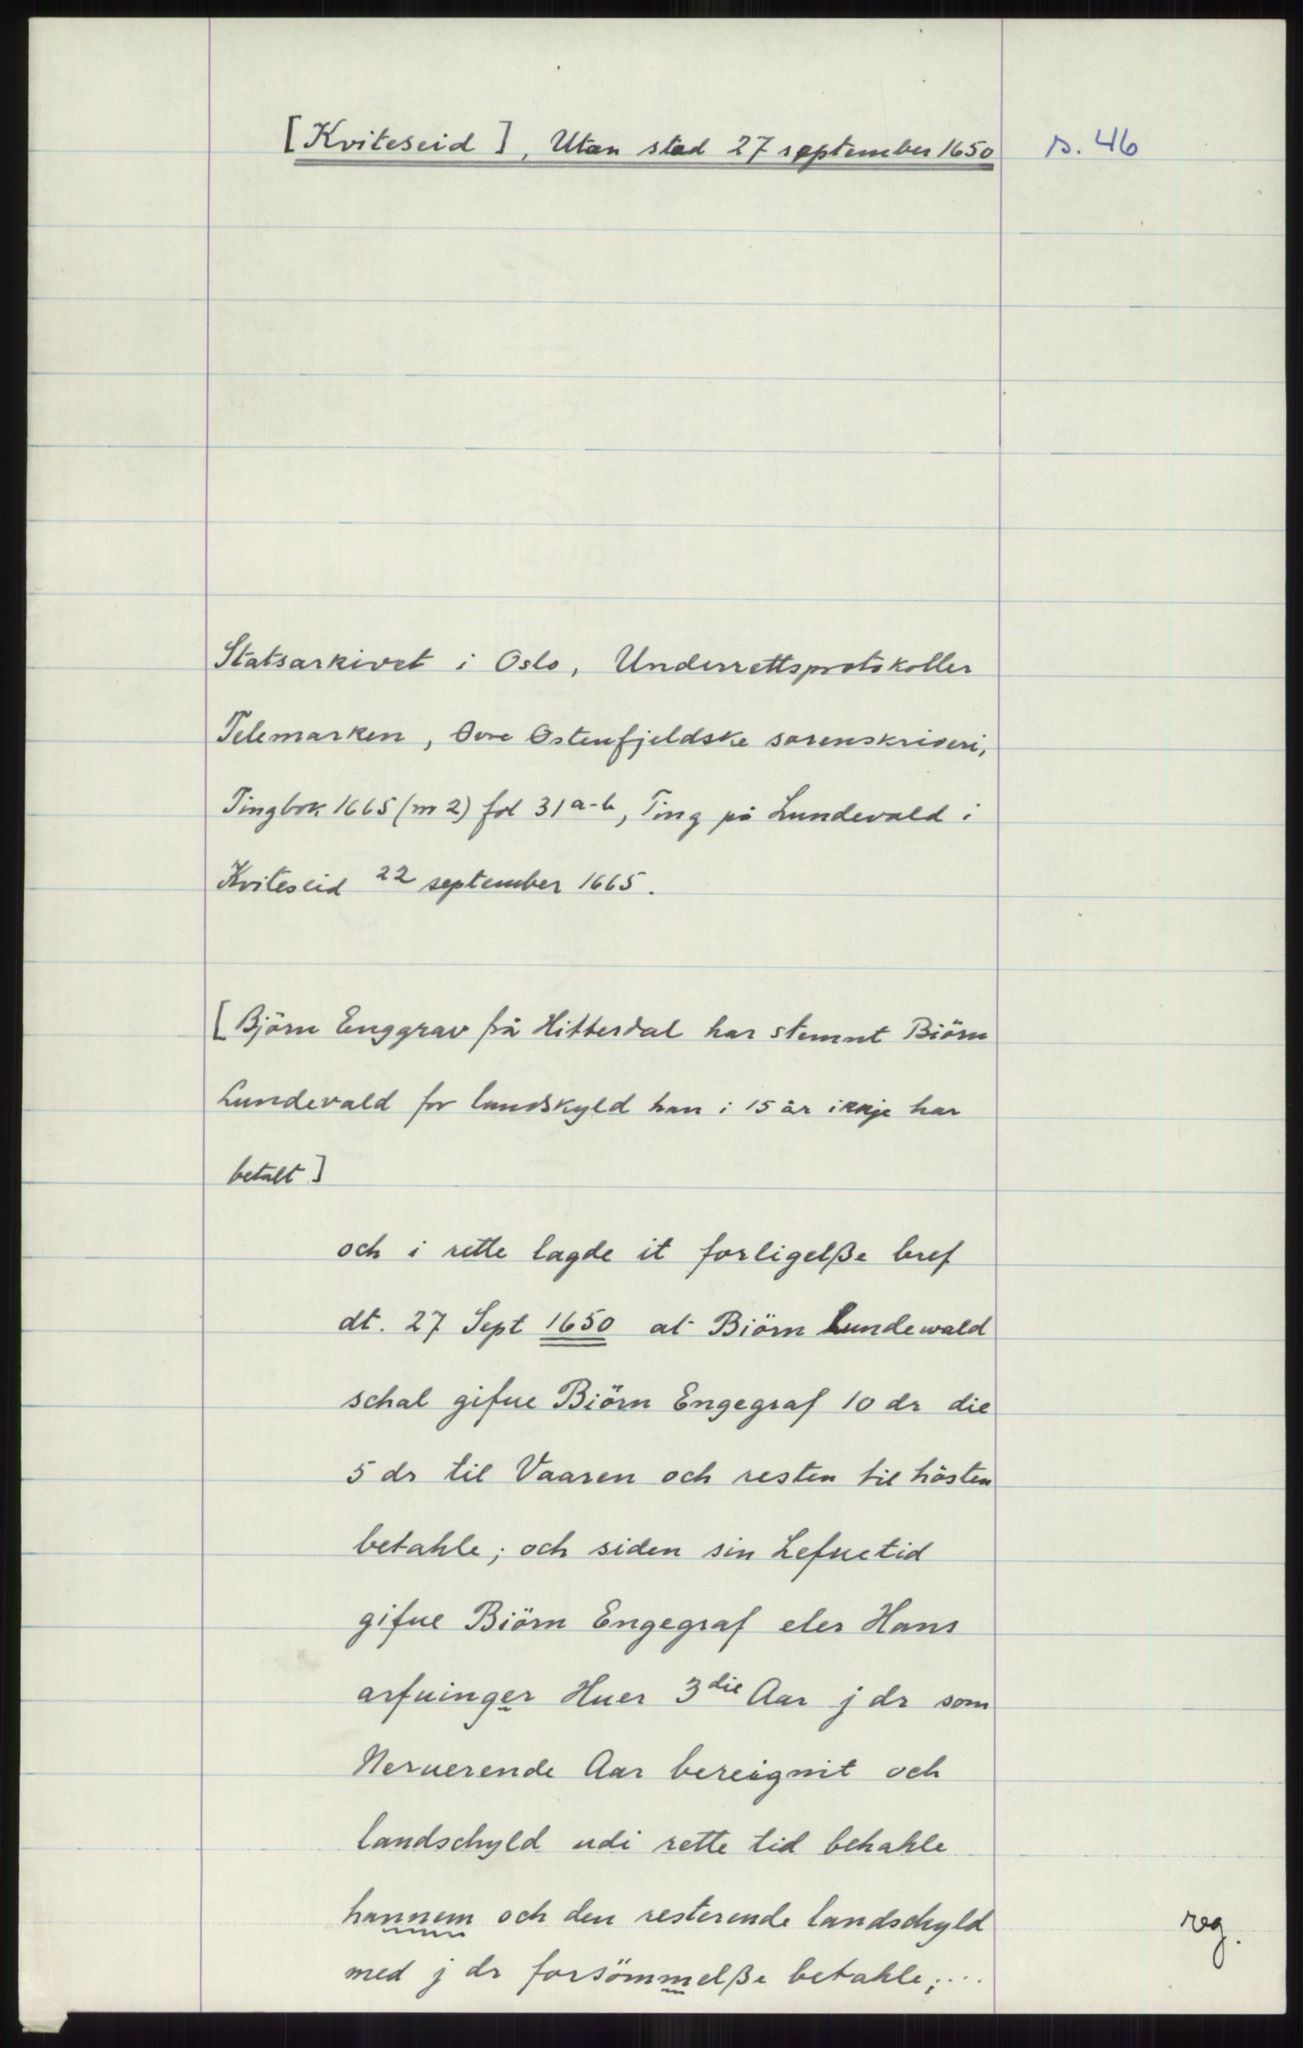 [Kviteseid], Utan stad 27 september 1650
s. 46
Statsarkivet i Oslo, Underrettsprotokoller
Telemarken, Övre Östenfjeldske sorenskriveri,
Tingbok 1665 (nr 2) fol 31 a-b, Ting på Lundevald i
Kviteseid 22 september 1665.
[Björn Enggrav frå Hitterdal har stemnt Biörn
Lundevald for landskyld han i 15 år ikkje har
betalt]
och i rette lagde it forligelße bref
dt. 27 Sept 1650 at Biörn Lundewald
schal gifue Biörn Engegraf 10 dr die
5 dr til Vaaren och resten til hösten
betahle; och siden sin Lefuetid
gifue Biörn Engegraf eler Hans
arfuinger Huer 3die Aar j dr som
Neruerende Aar bereignit och
landschyld udi rette tid betahle
hannem och den resterende landschyld
med j dr forsömmelße betahle; ...
reg.